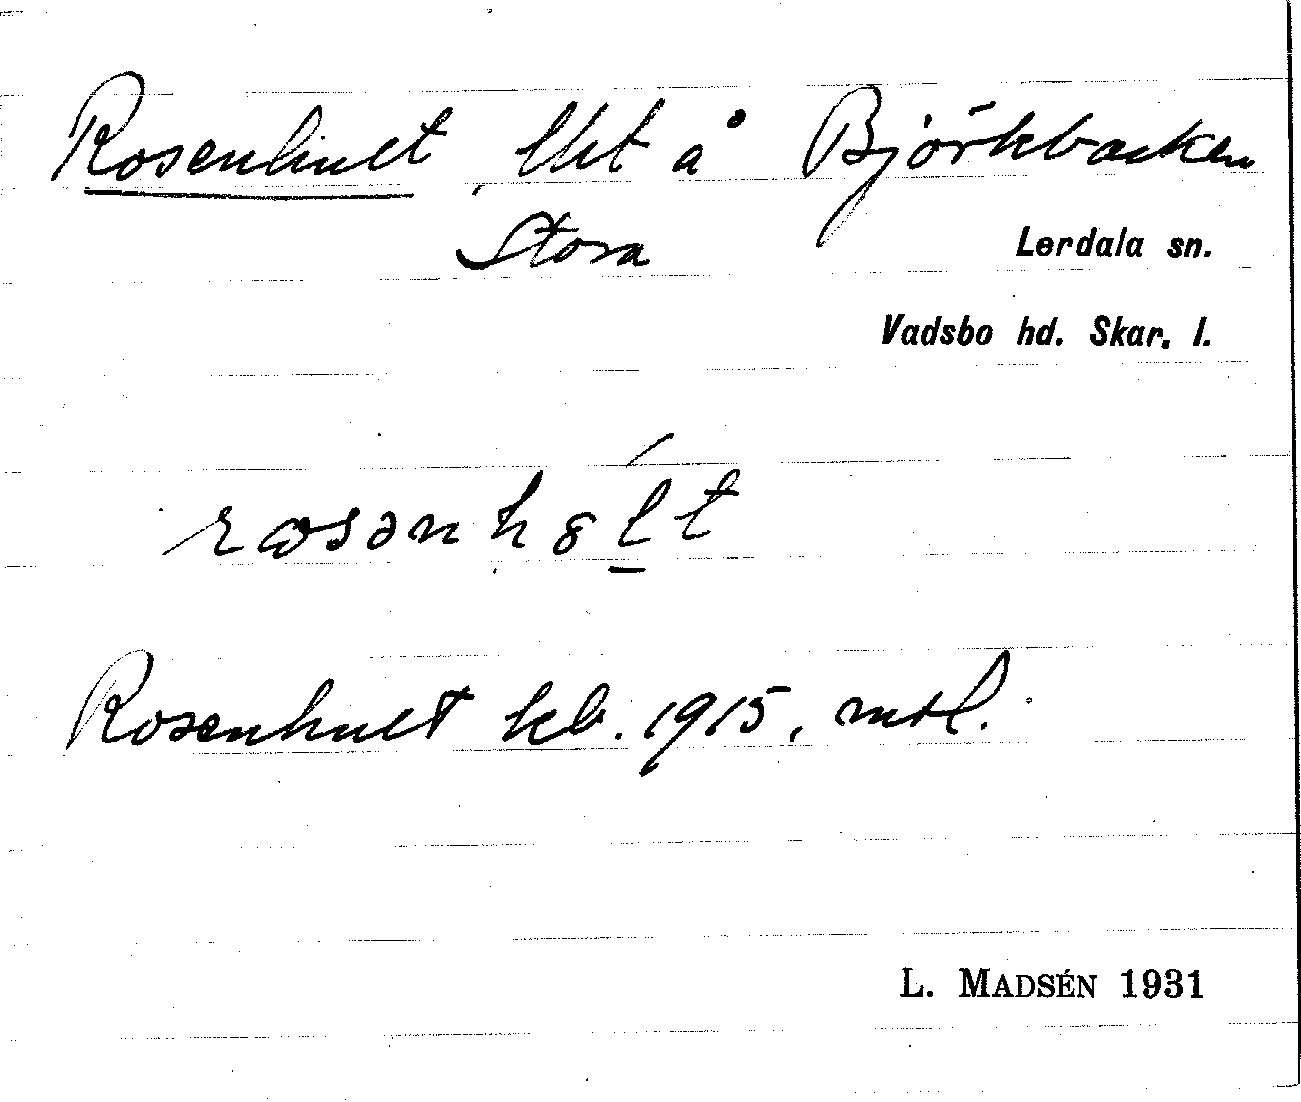 Rosenhult lht å Björkbacken
Stora
Lerdala sn.
Vadsbo hd. Skar. l.
Rosenhult kb. 1915, mtl.
L. MADSÉN 1931